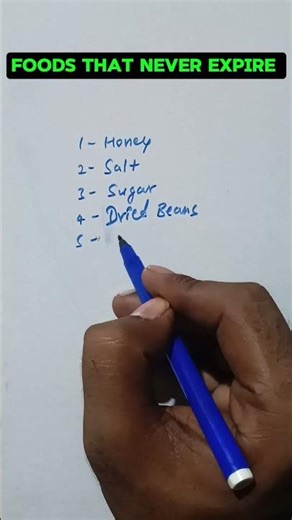 FOODS THAT NEVER EXPIRE
1 - Honey
2 - Salt
3 - Sugar
4 - Dried Beans
5 -